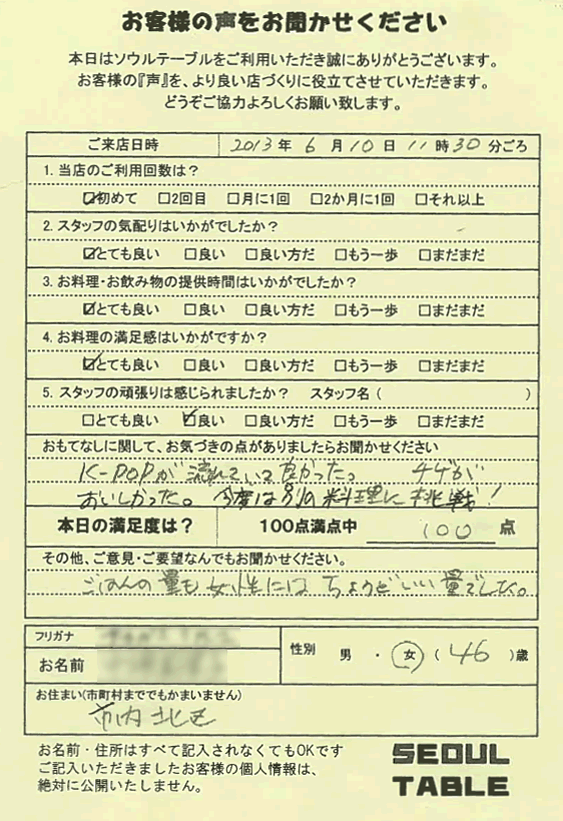 お客様の声をお聞かせください
本日はソウルテーブルをご利用いただき誠にありがとうございます。
お客様の『声』を、より良い店づくりに役立てさせていただきます。
どうぞご協力よろしくお願い致します。
ご来店日時 2013年 6月10日 11時30分ごろ
1. 当店のご利用回数は?
☑初めて □2回目 □月に1回 □2か月に1回 □それ以上
2. スタッフの気配りはいかがでしたか?
☑とても良い □良い □良い方だ □もう一歩 □まだまだ
3. お料理・お飲み物の提供時間はいかがでしたか?
☑とても良い □良い □良い方だ □もう一歩 □まだまだ
4. お料理の満足感はいかがですか?
☑とても良い □良い □良い方だ □もう一歩 □まだまだ
5. スタッフの頑張りは感じられましたか? スタッフ名( )
□とても良い ☑良い □良い方だ □もう一歩 □まだまだ
おもてなしに関して、お気づきの点がありましたらお聞かせください
K-POPが流れていて良かった。 チゲが
おいしかった。今度は別の料理に挑戦!
本日の満足度は? 100点満点中 100 点
その他、ご意見・ご要望なんでもお聞かせください。
ごはんの量も女性にはちょうどいい量でした。
フリガナ
お名前
性別 男 ・ 女 (46)歳
お住まい(市町村まででもかまいません)
市内北区
お名前・住所はすべて記入されなくてもOKです
ご記入いただきましたお客様の個人情報は、
絶対に公開いたしません。
SEOUL
TABLE